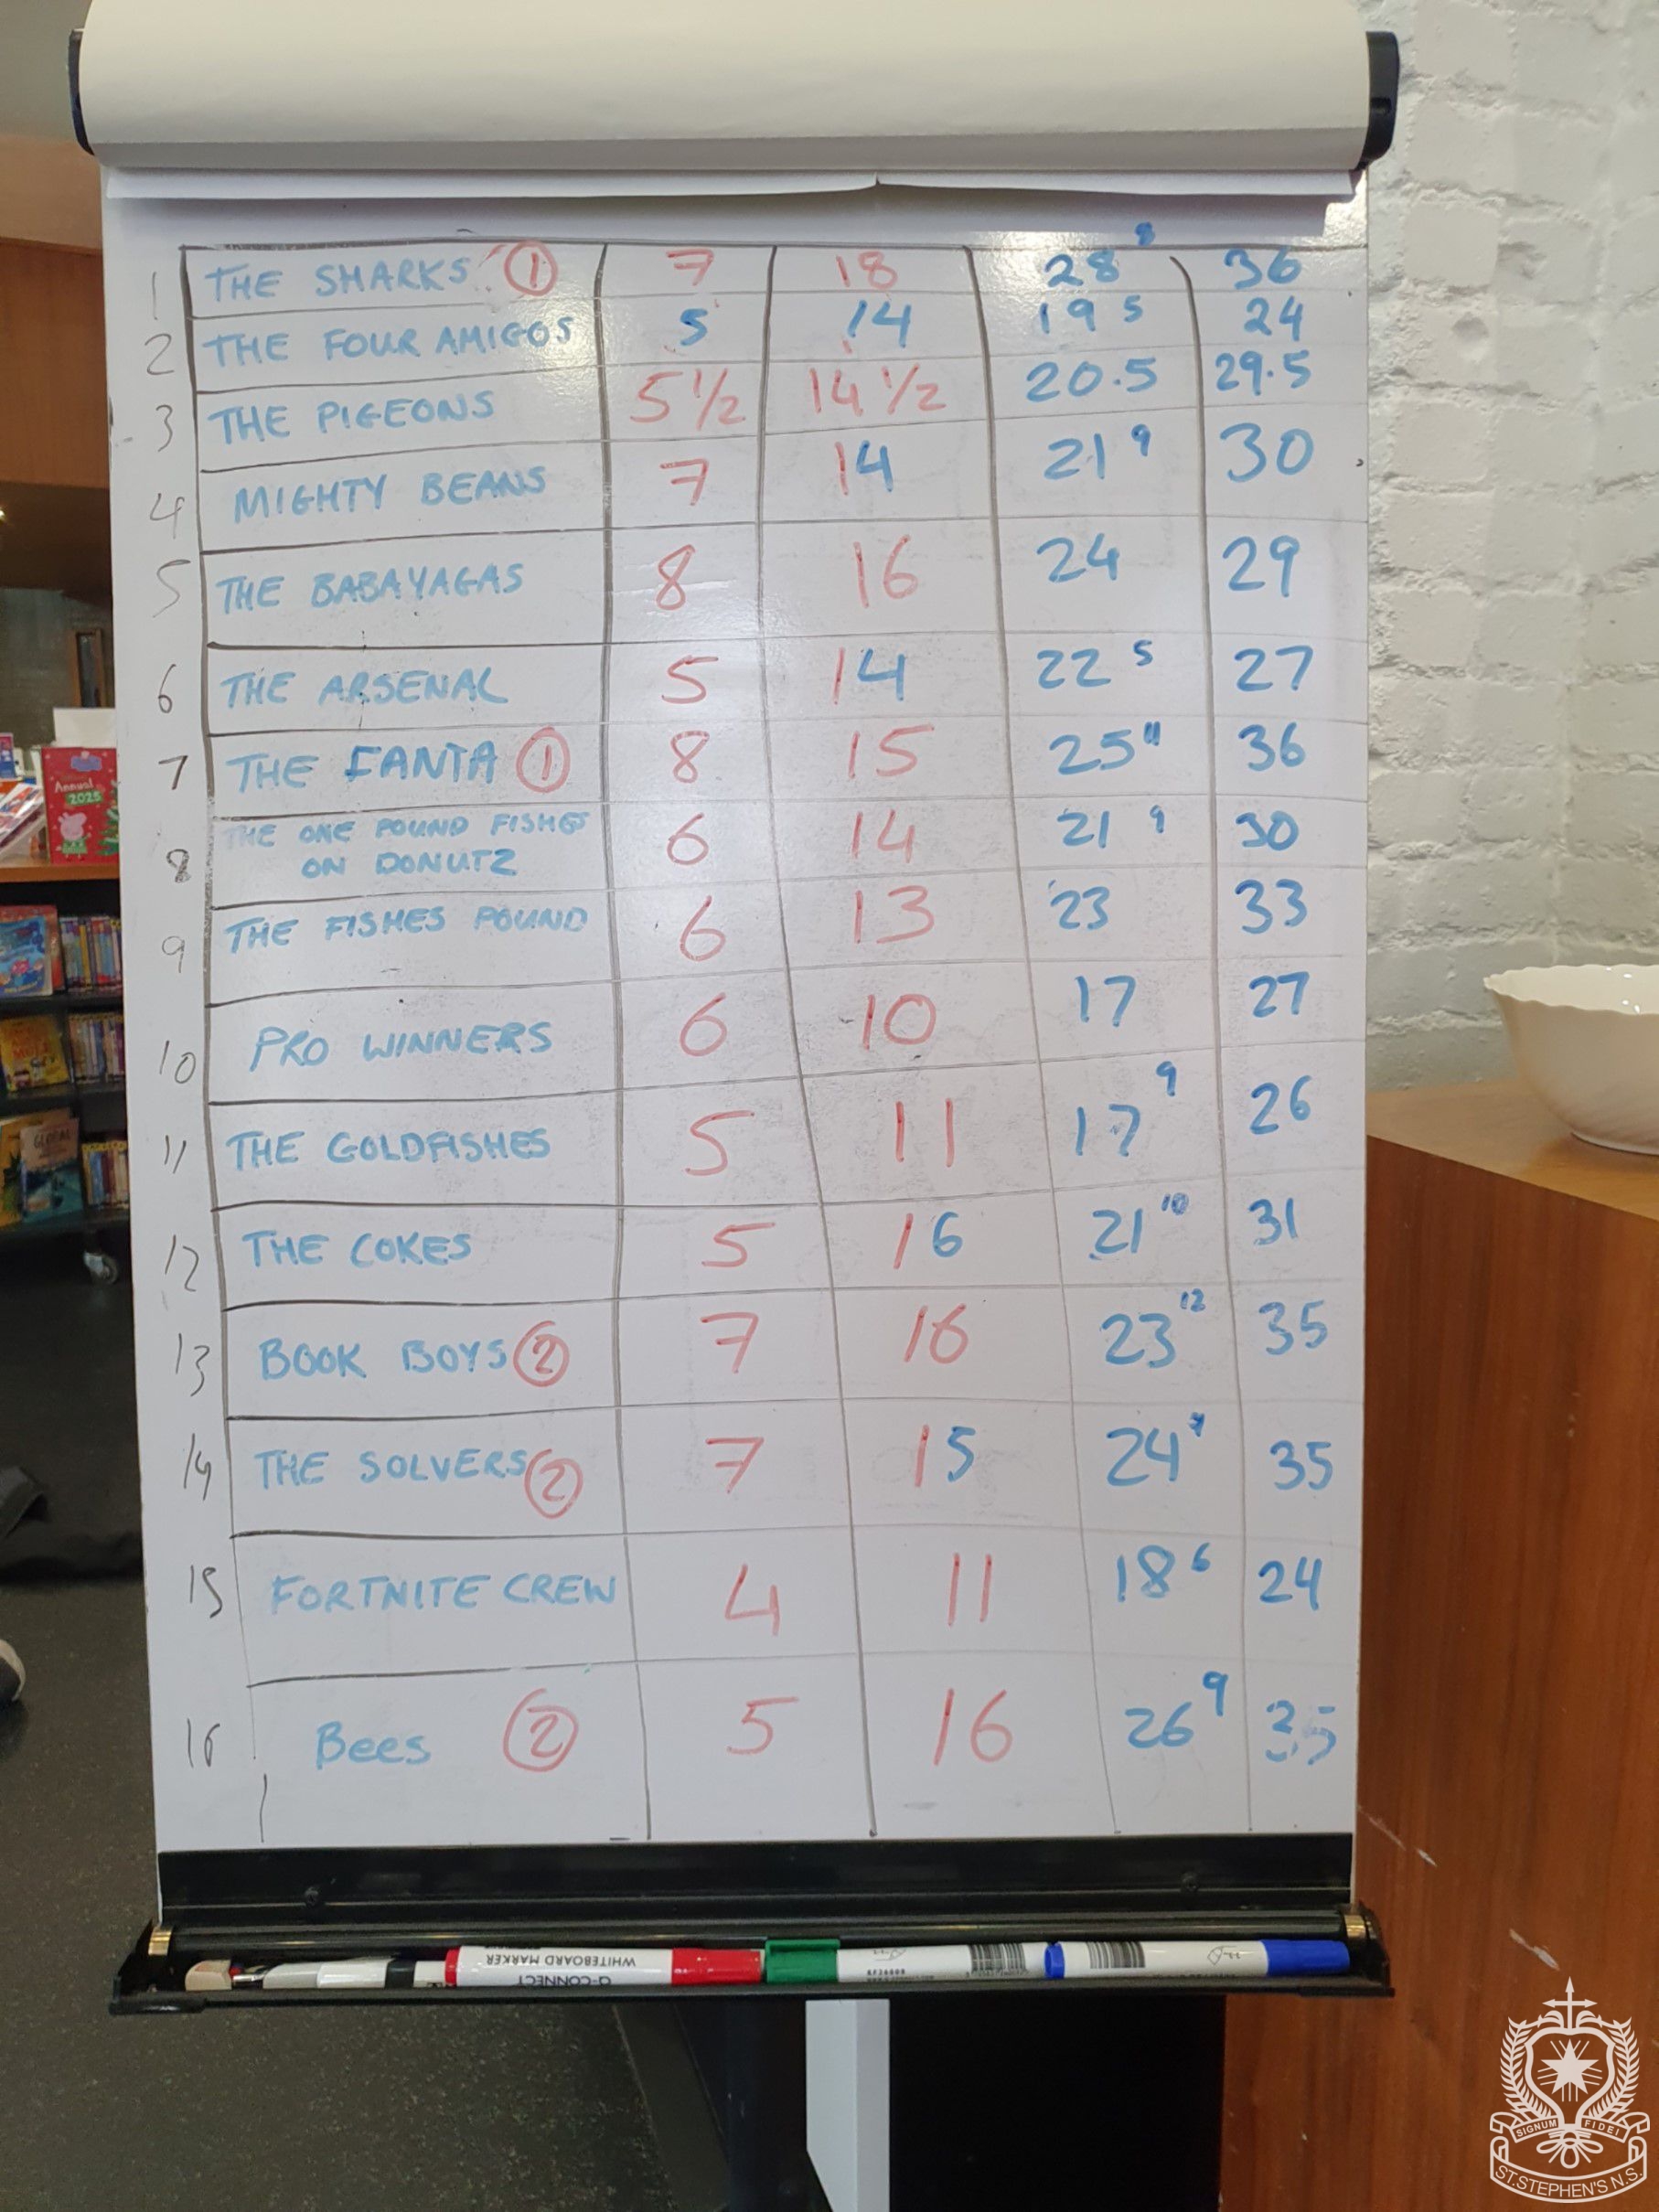 1 THE SHARKS ① 7 18 28 8 36
2 THE FOUR AMIGOS 5 14 19 5 24
3 THE PIGEONS 5 1/2 14 1/2 20.5 29.5
4 MIGHTY BEANS 7 14 21 9 30
5 THE BABAYAGAS 8 16 24 29
6 THE ARSENAL 5 14 22 5 27
7 THE FANTA ① 8 15 25 11 36
8 THE ONE POUND FISHES
ON DONUTZ 6 14 21 9 30
9 THE FISHES POUND 6 13 23 33
10 PRO WINNERS 6 10 17 27
11 THE GOLDFISHES 5 11 17 9 26
12 THE COKES 5 16 21 10 31
13 BOOK BOYS ② 7 16 23 12 35
14 THE SOLVERS ② 7 15 24 35
15 FORTNITE CREW 4 11 18 6 24
16 Bees ② 5 16 26 9 35
Annual
2025
Q-CONNECT
WHITEBOARD MARKER
SIGNUM FIDEI
ST. STEPHEN'S N.S.